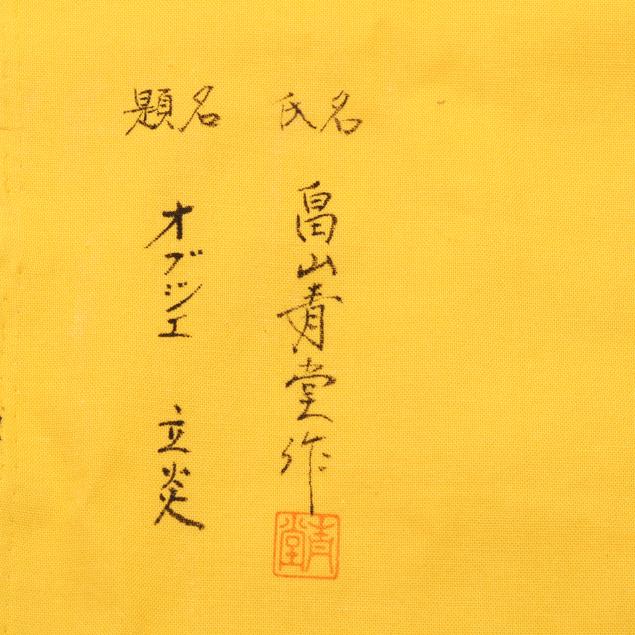 氏名
畠山青堂作
青堂
題名
オブジエ 立炎